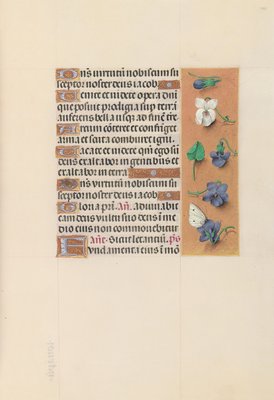 Dn̄s virtutū nobiscum su
sceptor noster deus iacob
Uenite et videte opera dn̄i
que posuit prodigia sup terrā
auferens bella usq̄ ad finē tr̄e
Arcum cōteret et confringet
arma et scuta comburet igni
Uacate et videte qm̄ ego sū
deus exaltabor in gentibus et
exaltabor in terra
Dn̄s virtutū nobiscum su
sceptor noster deus iacob
Gloria pr̄i. An̄. adiuvabit
eam deus vultu suo deus in me
dio eius non commovebitur
An̄. Sicut letantiū. ps̄
Fundamenta eius ī mō